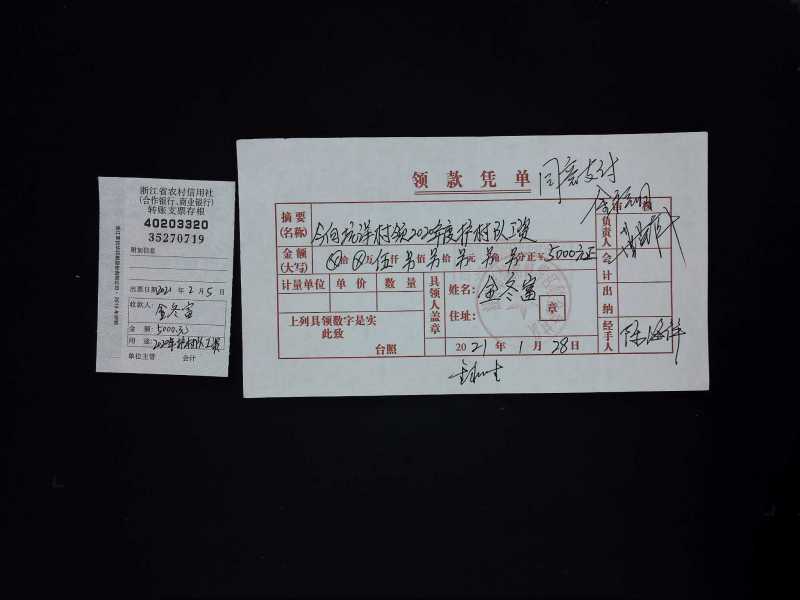 浙江省农村信用社
(合作银行、商业银行)
转账支票存根
40203320
35270719
附加信息
出票日期2021年2月5日
收款人:
金冬富
金 额:5000.元
用 途:2020年护村队工资
单位主管 会计
领款凭单
同意支付
摘要(名称) 今向坑洋村领2020年度护村队工资
金额(大写) ⊗拾⊗万伍仟另佰另拾另元另角另分正 ¥5000元正
计量单位 单价 数量
上列具领数字是实
此致
台照
具领人盖章
姓名:金冬富
住址:
章
2021年1月28日
负责人
会计
出纳
经手人